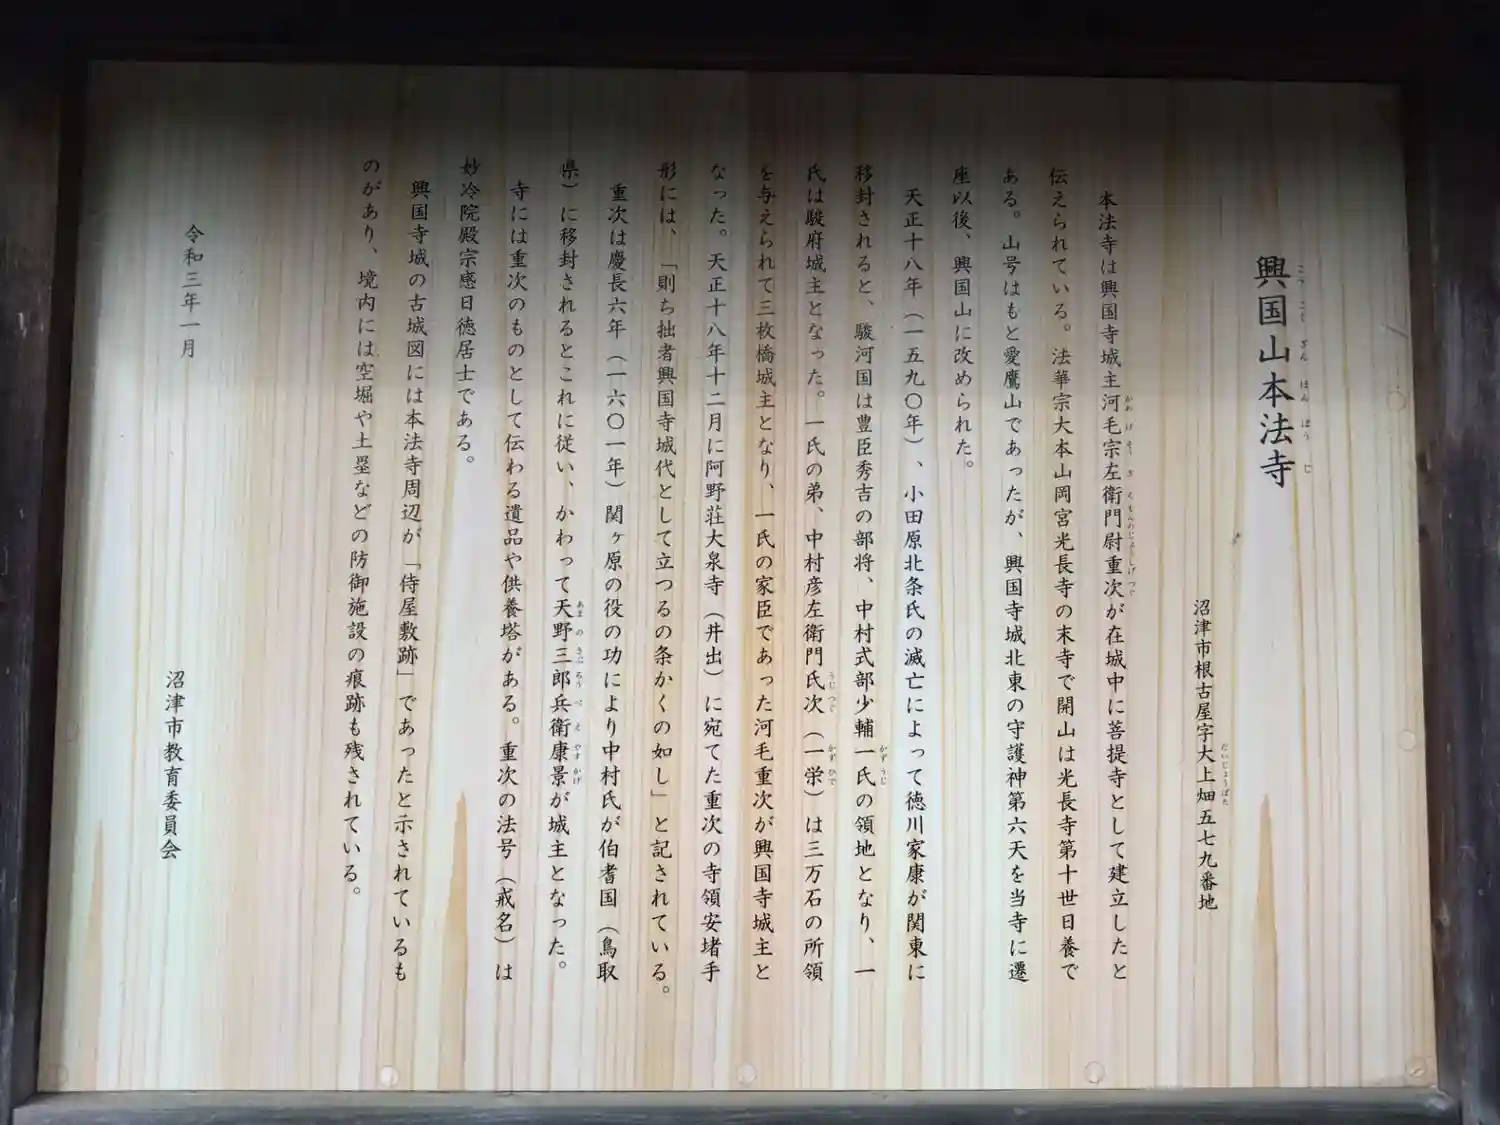 興国山本法寺
こうこくざんほんぽうじ
沼津市根古屋字大上畑五七九番地
だいじょうばた
本法寺は興国寺城主河毛宗左衛門尉重次が在城中に菩提寺として建立したと
伝えられている。法華宗大本山岡宮光長寺の末寺で開山は光長寺第十世日養で
ある。山号はもと愛鷹山であったが、興国寺城北東の守護神第六天を当寺に遷
座以後、興国山に改められた。
天正十八年（一五九〇年）、小田原北条氏の滅亡によって徳川家康が関東に
移封されると、駿河国は豊臣秀吉の部将、中村式部少輔一氏の領地となり、一
かずうじ
氏は駿府城主となった。一氏の弟、中村彦左衛門氏次（一栄）は三万石の所領
うじつぐ かずひで
を与えられて三枚橋城主となり、一氏の家臣であった河毛重次が興国寺城主と
なった。天正十八年十二月に阿野荘大泉寺（井出）に宛てた重次の寺領安堵手
形には、「則ち拙者興国寺城代として立つるの条かくの如し」と記されている。
重次は慶長六年（一六〇一年）関ヶ原の役の功により中村氏が伯耆国（鳥取
県）に移封されるとこれに従い、かわって天野三郎兵衛康景が城主となった。
あまのさぶろうべえやすかげ
寺には重次のものとして伝わる遺品や供養塔がある。重次の法号（戒名）は
妙冷院殿宗感日徳居士である。
興国寺城の古城図には本法寺周辺が「侍屋敷跡」であったと示されているも
のがあり、境内には空堀や土塁などの防御施設の痕跡も残されている。
令和三年一月
沼津市教育委員会